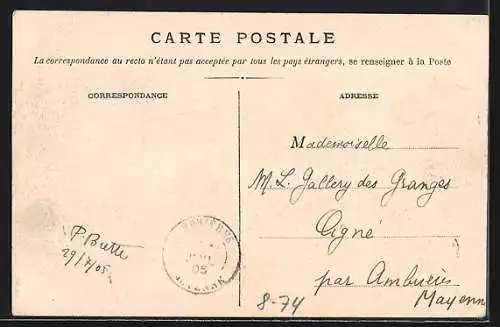 CARTE POSTALE
La correspondance au recto n'étant pas acceptée par tous les pays étrangers, se renseigner à la Poste
CORRESPONDANCE
ADRESSE
Mademoiselle
M. L. Gallery des Granges
Aigné
par Ambrières
Mayenn
P. Butte
29/7/05
05
MAYENNE
8-74